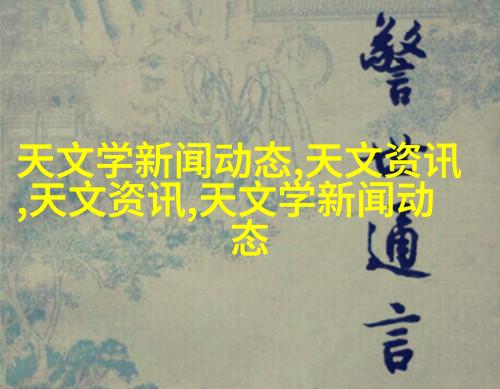 天文学新闻动态,天文资讯
,天文资讯,天文学新闻动
态
警世通言